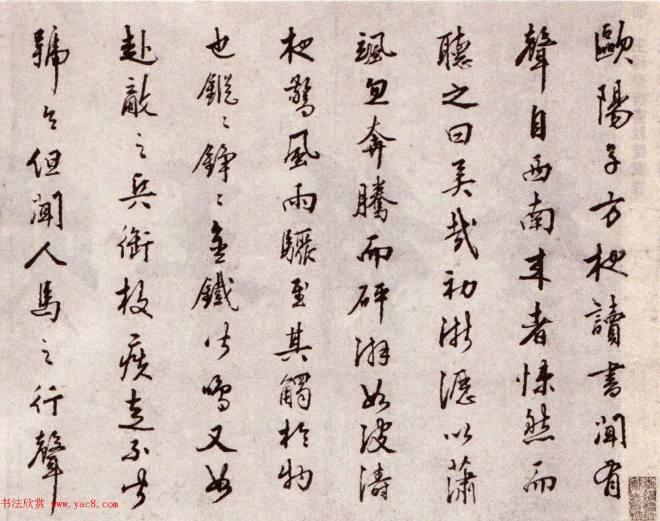 歐陽子方夜讀書聞有
聲自西南來者悚然而
聽之曰異哉初淅瀝以蕭
颯忽奔騰而砰湃如波濤
夜驚風雨驟至其觸於物
也鏦〻錚〻金鐵皆鳴又如
赴敵之兵銜枚疾走不聞
號令但聞人馬之行聲
书法欣赏 www.yac8.com